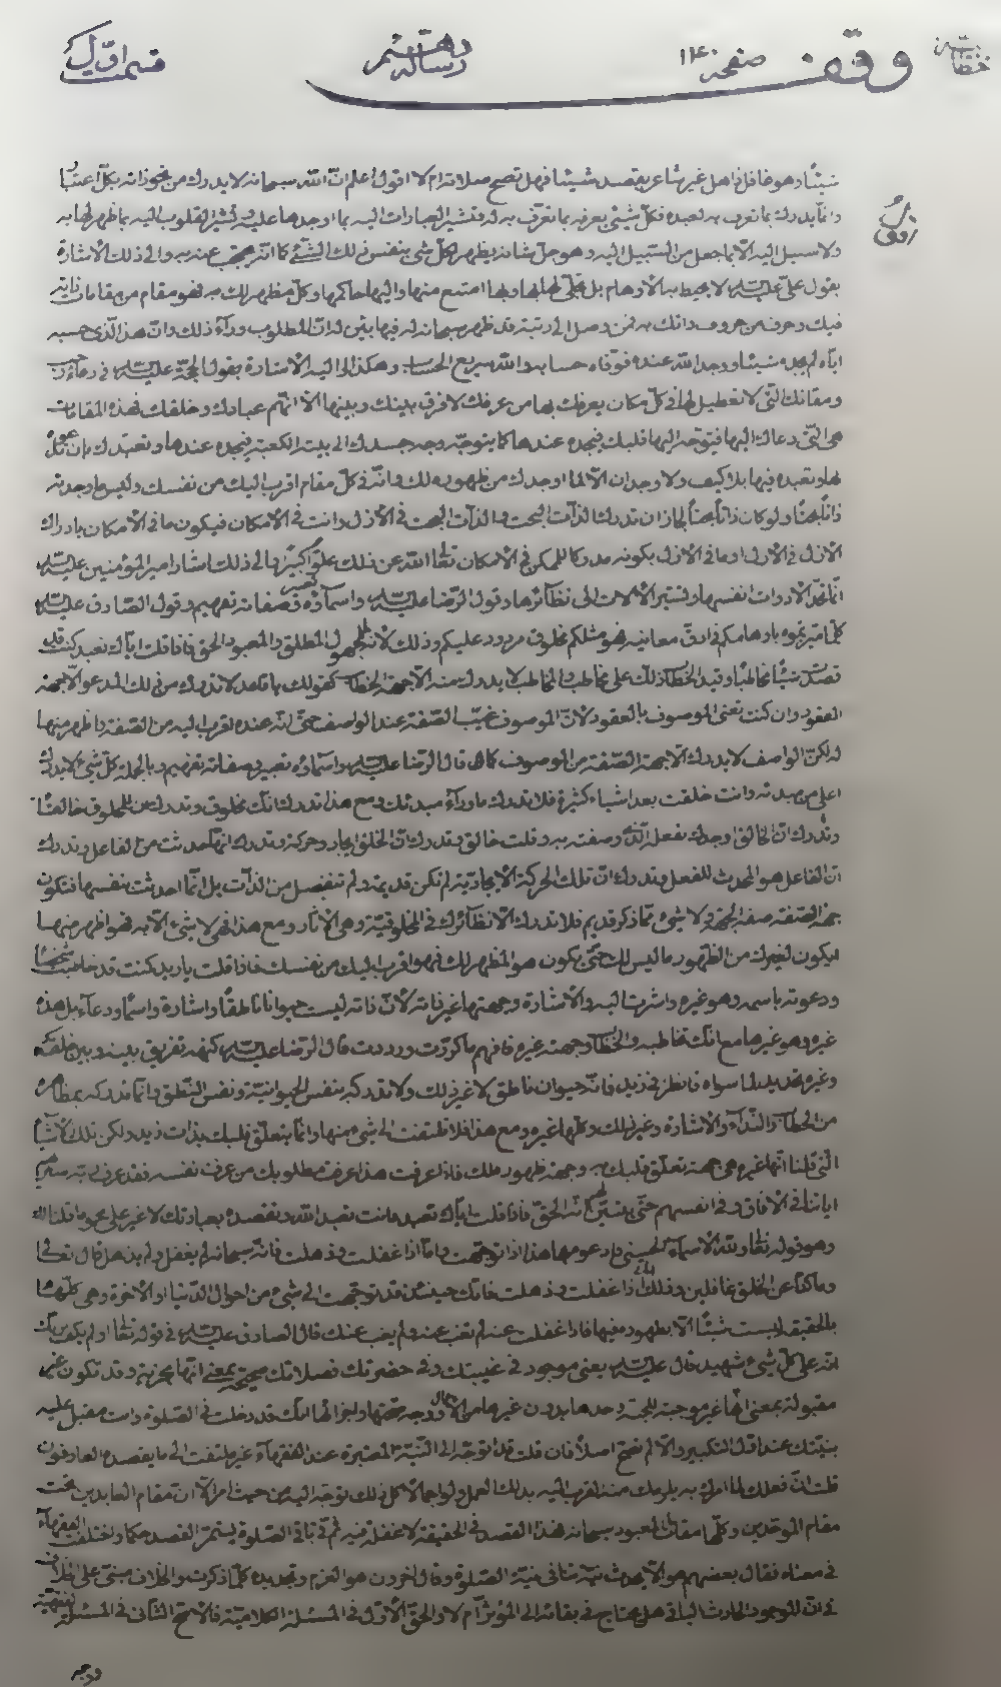 قسمت اوّل
رسالهٔ هشتم
صفحه ۱۴۰
وقف
شيئاً وهو غافل ذاهل غير شاعر بقصد شيئا فهل تصح صلاته ام لا اقول اعلم ان الله سبحانه لا يدرك من نحو ذاته بكل اعتبار
وانما يدرك بما تعرف به لعبده فكل شيئ يعرفه بما تعرف به له فتشير العبارات اليه بما اوجدها عليه وتشير القلوب اليه بما ظهر لها به
ولا سبيل اليه الا بما جعل من السبيل اليه وهو جل شانه يظهر لكل شيئ بنفس ذلك الشيئ كما انه يحتجب عنه به والى ذلك الاشارة
بقول علي عليه السلام لا تحيط به الاوهام بل تجلى لها بها وبها امتنع منها واليها حاكمها وكل مظهر لك به فهو مقام من مقامات ذاته
فيك وحرف من حروف ذاتك به فمن وصل الى رتبة قد ظهر سبحانه له فيها تبين له ان المطلوب وراء ذلك وان هذا الذي حسبه
اياه لم يجده شيئا ووجد الله عنده فوفاه حسابه والله سريع الحساب وهكذا والى اليه الاشارة بقول الحجة عليه السلام في دعاء رجب
ومقاماتك التي لا تعطيل لها في كل مكان يعرفك بها من عرفك لا فرق بينك وبينها الا انهم عبادك وخلقك فهذه المقامات
هي التي دعاك اليها فيتوجه اليها قلبك فيجده عندها كما يتوجه وجه جسدك الى بيت الكعبة فيجده عندها وتعبدك بان تدعوه
بها وتعبده فيها بلا كيف ولا وجدان الا لما اوجدك من ظهوره لك فانه في كل مقام اقرب اليك من نفسك وليس ما وجدته
ذاتاً بحتاً ولو كان ذاتاً بحتاً لجاز ان تدرك الذات البحت والذات البحت في الازل وانت في الامكان فيكون ما في الامكان بادراك
الازل في الازل او ما في الازل بكونه مدركا للممكن في الامكان تعالى الله عن ذلك علواً كبيراً والى ذلك اشار امير المؤمنين عليه السلام
انما تحد الادوات انفسها وتشير الالات الى نظائرها وقول الرضا عليه السلام واسماؤه تعبير وصفاته تفهيم وقول الصادق عليه السلام
كلما ميزتموه باوهامكم في ادق معانيه فهو مثلكم مخلوق مردود عليكم وذلك لانه المجهول المطلق والمعبود الحق فاذا قلت اياك نعبد كنت قد
قصدت شيئاً مخاطباً وقيد الخطاب ذلك على مخاطب والمخاطب لا يدرك منه الا جهة الخطاب كقولك يا قاعد لا تدرك من ذلك المدعو الا جهة
القعود وان كنت تعني الموصوف بالقعود لان الموصوف غيب الصفة عند الواصف حتى انه عنده اقرب اليه من الصفة واظهر منها
له لكن الواصف لا يدرك الا جهة الصفة من الموصوف كما قال الرضا عليه السلام واسماؤه تعبير وصفاته تفهيم وبالجملة كل شيئ لا يدرك
اعلى من مبدئه وانت خلقت بعد اشياء كثيرة فلا تدرك ما وراء مبدئك ومع هذا تدرك انك مخلوق وتدرك من المخلوق خالقاً
وتدرك ان الخالق اوجدك بفعله الذي وصفته به وقلت خالق وتدرك ان الخلق ايجاد وحركة وتدرك انها حدثت من الفاعل وتدرك
ان الفاعل هو المحدث للفعل وتدرك ان تلك الحركة الايجادية لم تكن قديمة ولم تنفصل من الذات بل انما احدثت بنفسها فتكون
جهة الصفة صفة الجهة ولا شيئ مما ذكر قديم فلا تدرك الا نظائرك في المخلوقية وهي الآثار ومع هذا فهي لا شيئ الا به فهو اظهر منها
ايكون لغيرك من الظهور ما ليس لك حتى يكون هو المظهر لك فهو اقرب اليك من نفسك فاذا قلت يا زيد كنت قد خاطبت شخصاً
ودعوته باسمه وهو غيره واشرت اليه والاشارة وجهتها غير ذاته لان ذاته ليست حيوانا ناطقاً واشارة واسماً ودعاء بل هذه
غيره وهو غيرها مع انك تخاطبه والخطاب وجهته غيره فافهم ما كررت ورددت قال الرضا عليه السلام كنهه تفريق بينه وبين خلقه
وغيره تحديد لما سواه فانظر في زيد فانه حيوان ناطق لا غير ذلك ولا تدركه بنفس الحيوانية ونفس النطق وانما تدركه بمظاهره
من الخطاب والنداء والاشارة وغير ذلك وكلها غيره ومع هذا فلا تلتفت الى شيئ منها وانما يتعلق قلبك بذات زيد ولكن تلك الاشياء
التي قلنا انها غيره هي جهة تعلق قلبك به وجهة ظهوره لك فاذا عرفت هذا عرفت مطلوبك من عرف نفسه فقد عرف ربه سنريهم
اياتنا في الافاق وفي انفسهم حتى يتبين لهم انه الحق فاذا قلت اياك نعبد فانت تعبد الله وتقصده بعبادتك لا غير على نحو ما قلنا لك
وهو قوله تعالى ولله الاسماء الحسنى فادعوه بها هذا اذا توجهت واما اذا غفلت وذهلت فانه سبحانه لم يغفل ولم يذهل قال تعالى
وما كنا عن الخلق غافلين وذلك لانك اذا غفلت وذهلت فانك حينئذ قد توجهت الى شيئ من احوال الدنيا او الاخرة وهي كلها
بالحقيقة ليست شيئاً الا بظهوره فيها فاذا غفلت عنه لم تغب عنه ولم يغب عنك قال الصادق عليه السلام في قوله تعالى اولم يكف بربك
انه على كل شيئ شهيد قال عليه السلام يعني موجود في غيبتك وفي حضرتك فصلاتك صحيحة بمعنى انها مجزية وقد تكون غير
مقبولة بمعنى انها غير موجبة للجنة وحدها بدون غيرها من الاعمال ووجه صحتها واجزائها انك قد دخلت في الصلوة وانت مقبل عليه
بنيتك عند اول التكبير والا لم تصح اصلاً فان قلت قد اتوجه الى النية المعتبرة عند الفقهاء غير ملتفت الى ما يقصده العارفون
قلت ان فعلك لما امرك به يلزمك منه القرب اليه بذلك العمل ولو اجمالا وكل ذلك توجه اليه من حيث امر الا ان مقام العابدين تحت
مقام الموحدين وكلها مقامات المعبود سبحانه فهذا القصد في الحقيقة لا غفلة فيه ثم في باقي الصلوة يستمر القصد حكما واختلف الفقهاء
في معناه فقال بعضهم هو الا يحدث نية تنافي نية الصلوة وقال اخرون هو العزم وتجديده كلما ذكرت والخلاف مبني على الخلاف
في ان الموجود الحادث الباقي هل يحتاج في بقائه الى المؤثر ام لا والحق الاول في المسئلة الكلامية والاصح الثاني في المسئلة الفقهية
ووجه